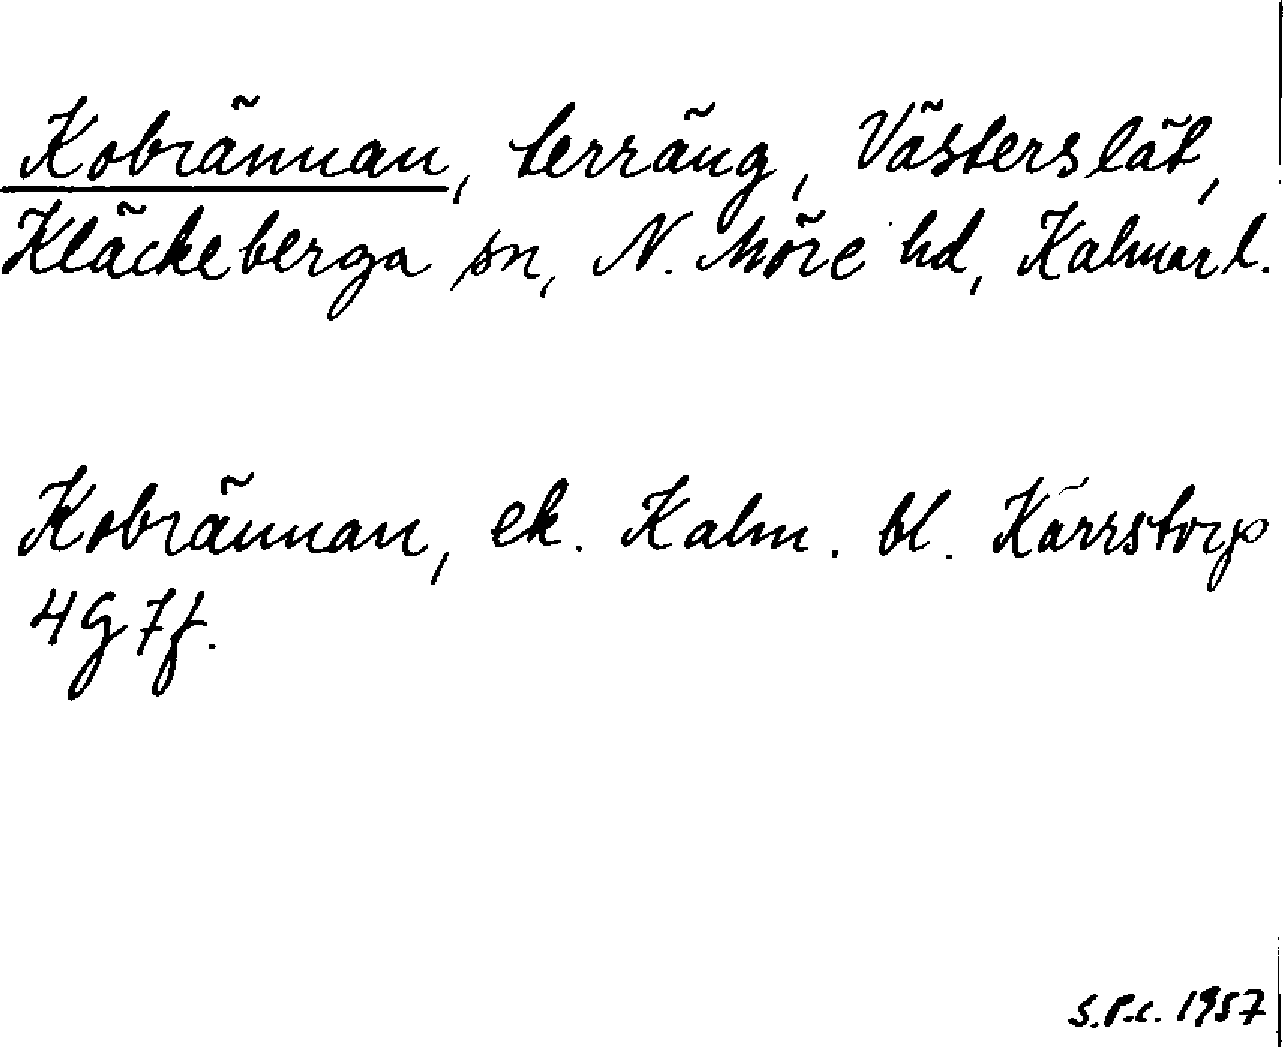 Kobrännan, terräng, Västerslät,
Kläckeberga sn, N. Möre hd, Kalmar l.
Kobrännan, ek. Kalm. bl. Kärrstorp
4G7f.
S.P-c. 1957